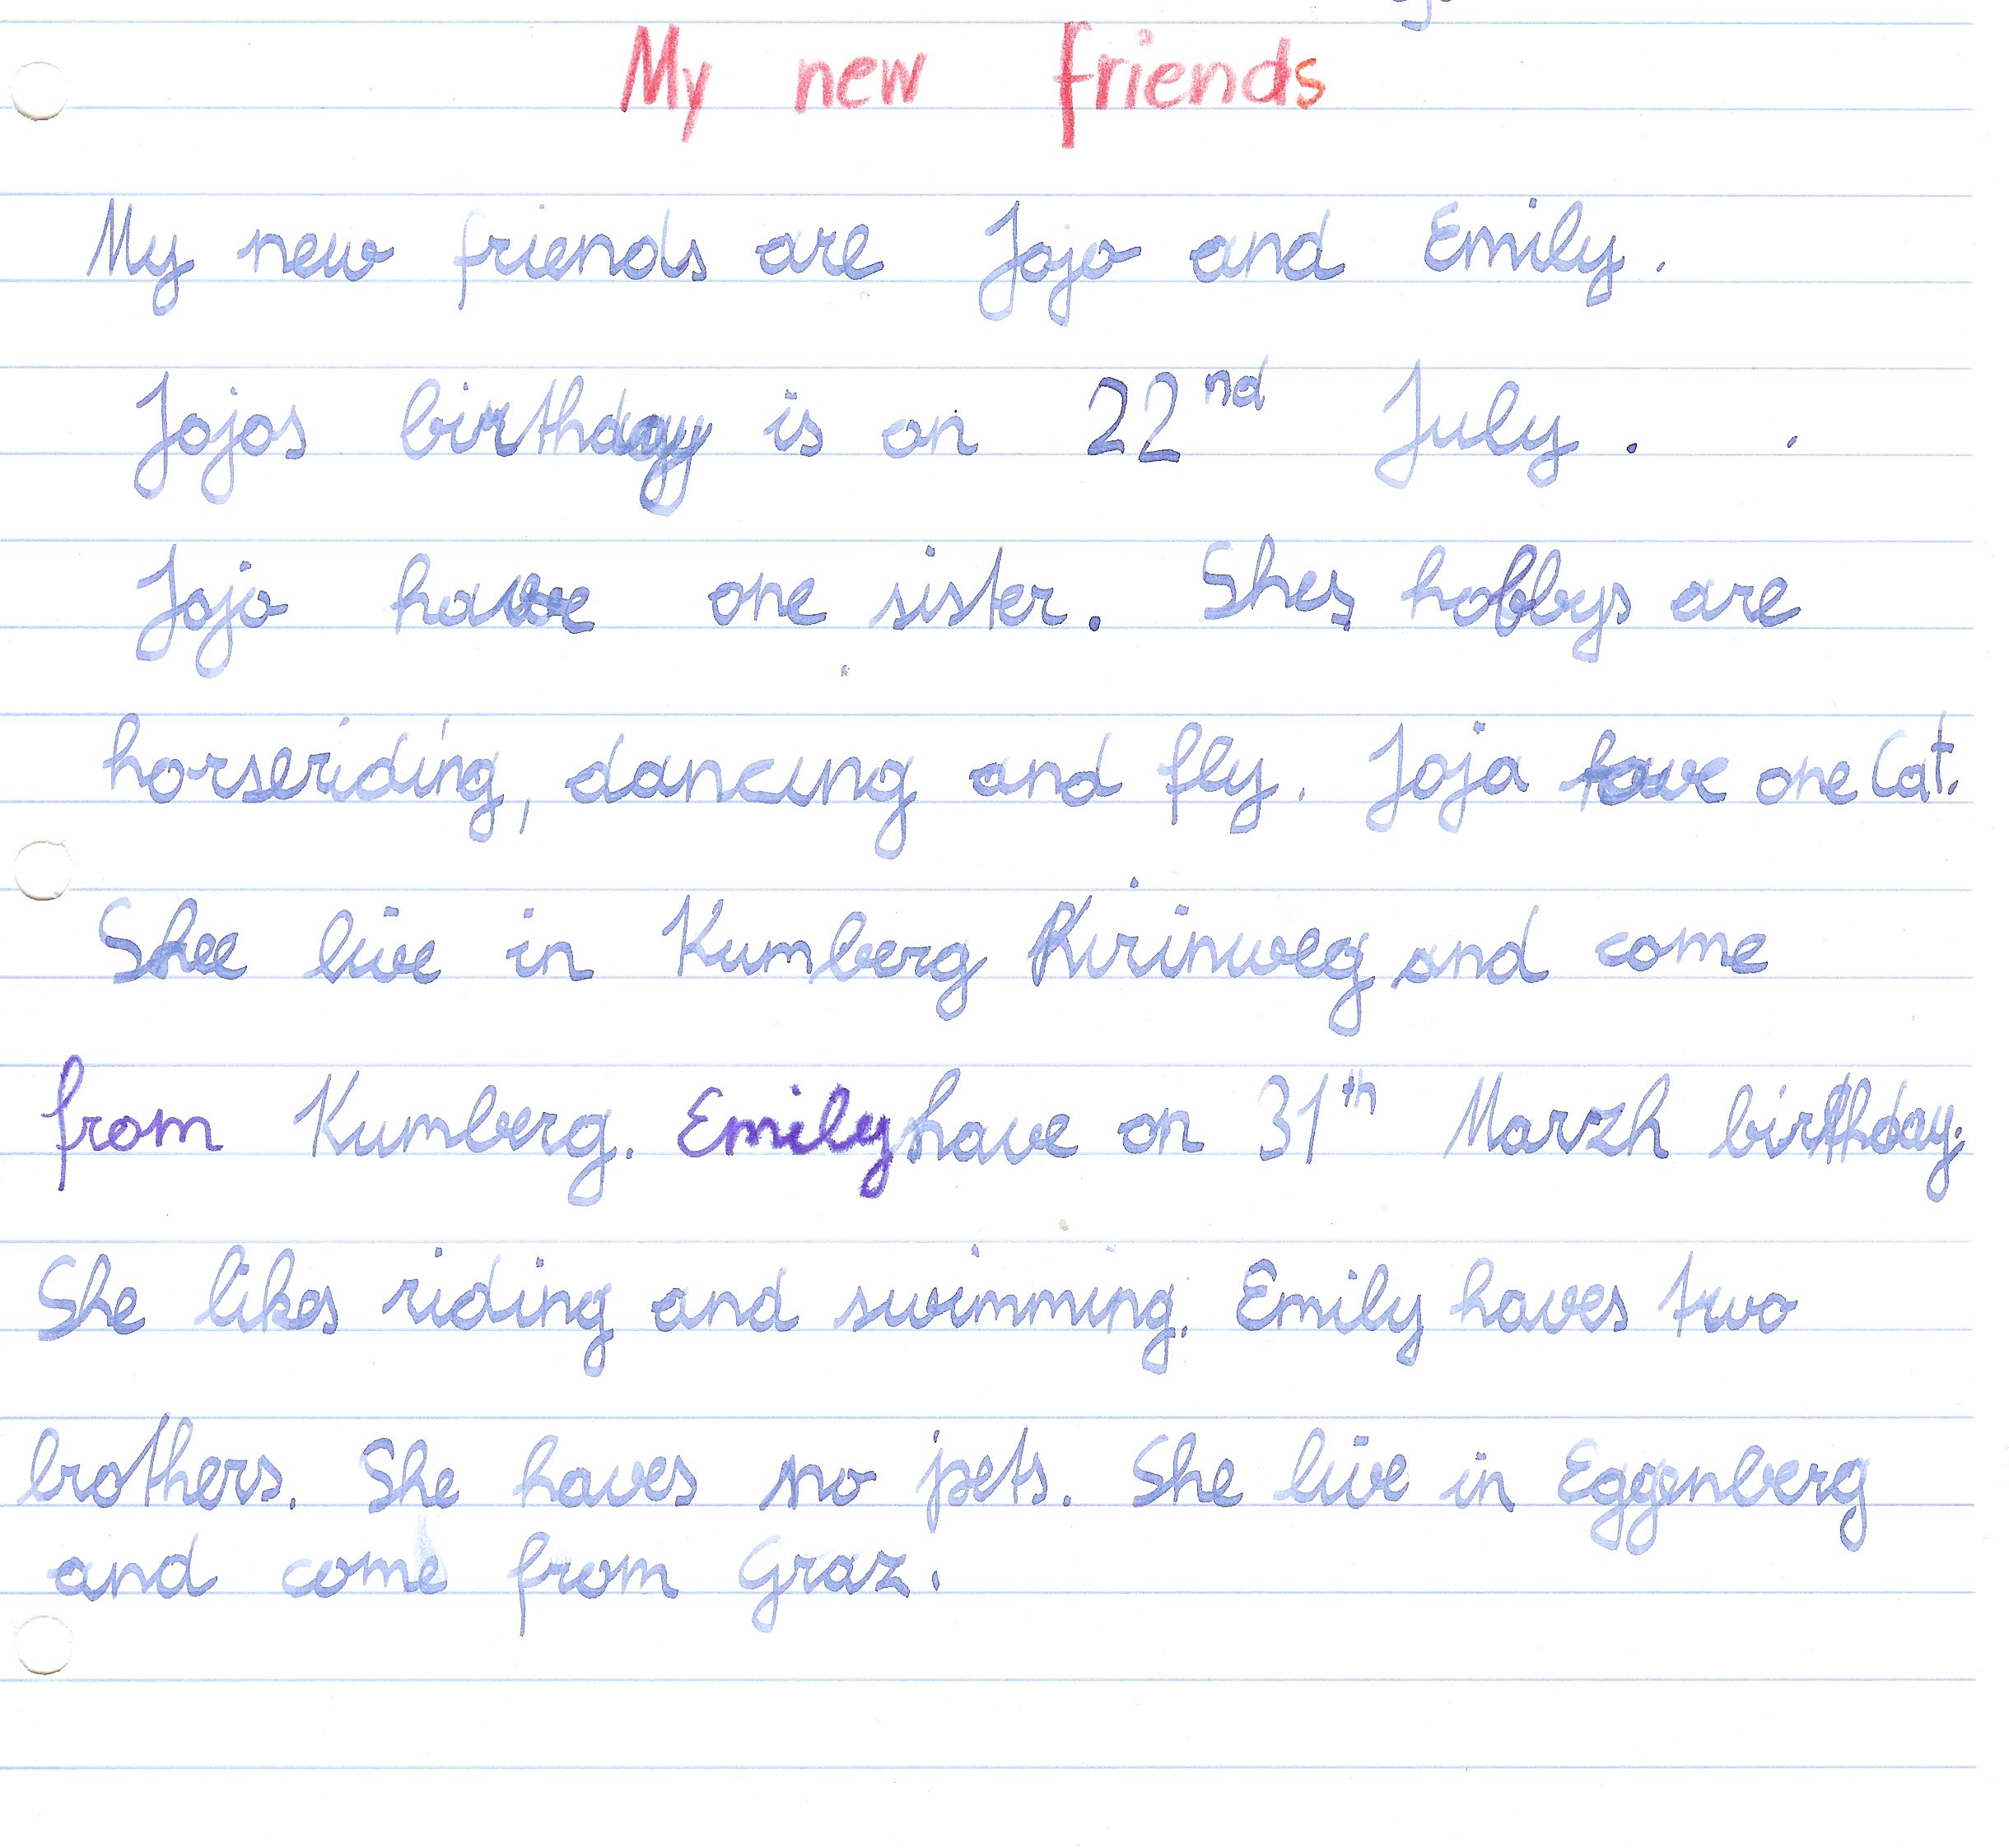 My new friends
My new friends are Jojo and Emily.
Jojos birthday is on 22nd July.
Jojo have one sister. Shes hobbys are
horseriding, dancing and fly. Joja have one Cat.
Shee live in Kumberg Kirinweg and come
from Kumberg. Emily have on 31th Marzh birthday.
She likes riding and swimming. Emily haves two
brothers. She haves no pets. She live in Eggenberg
and come from Graz.